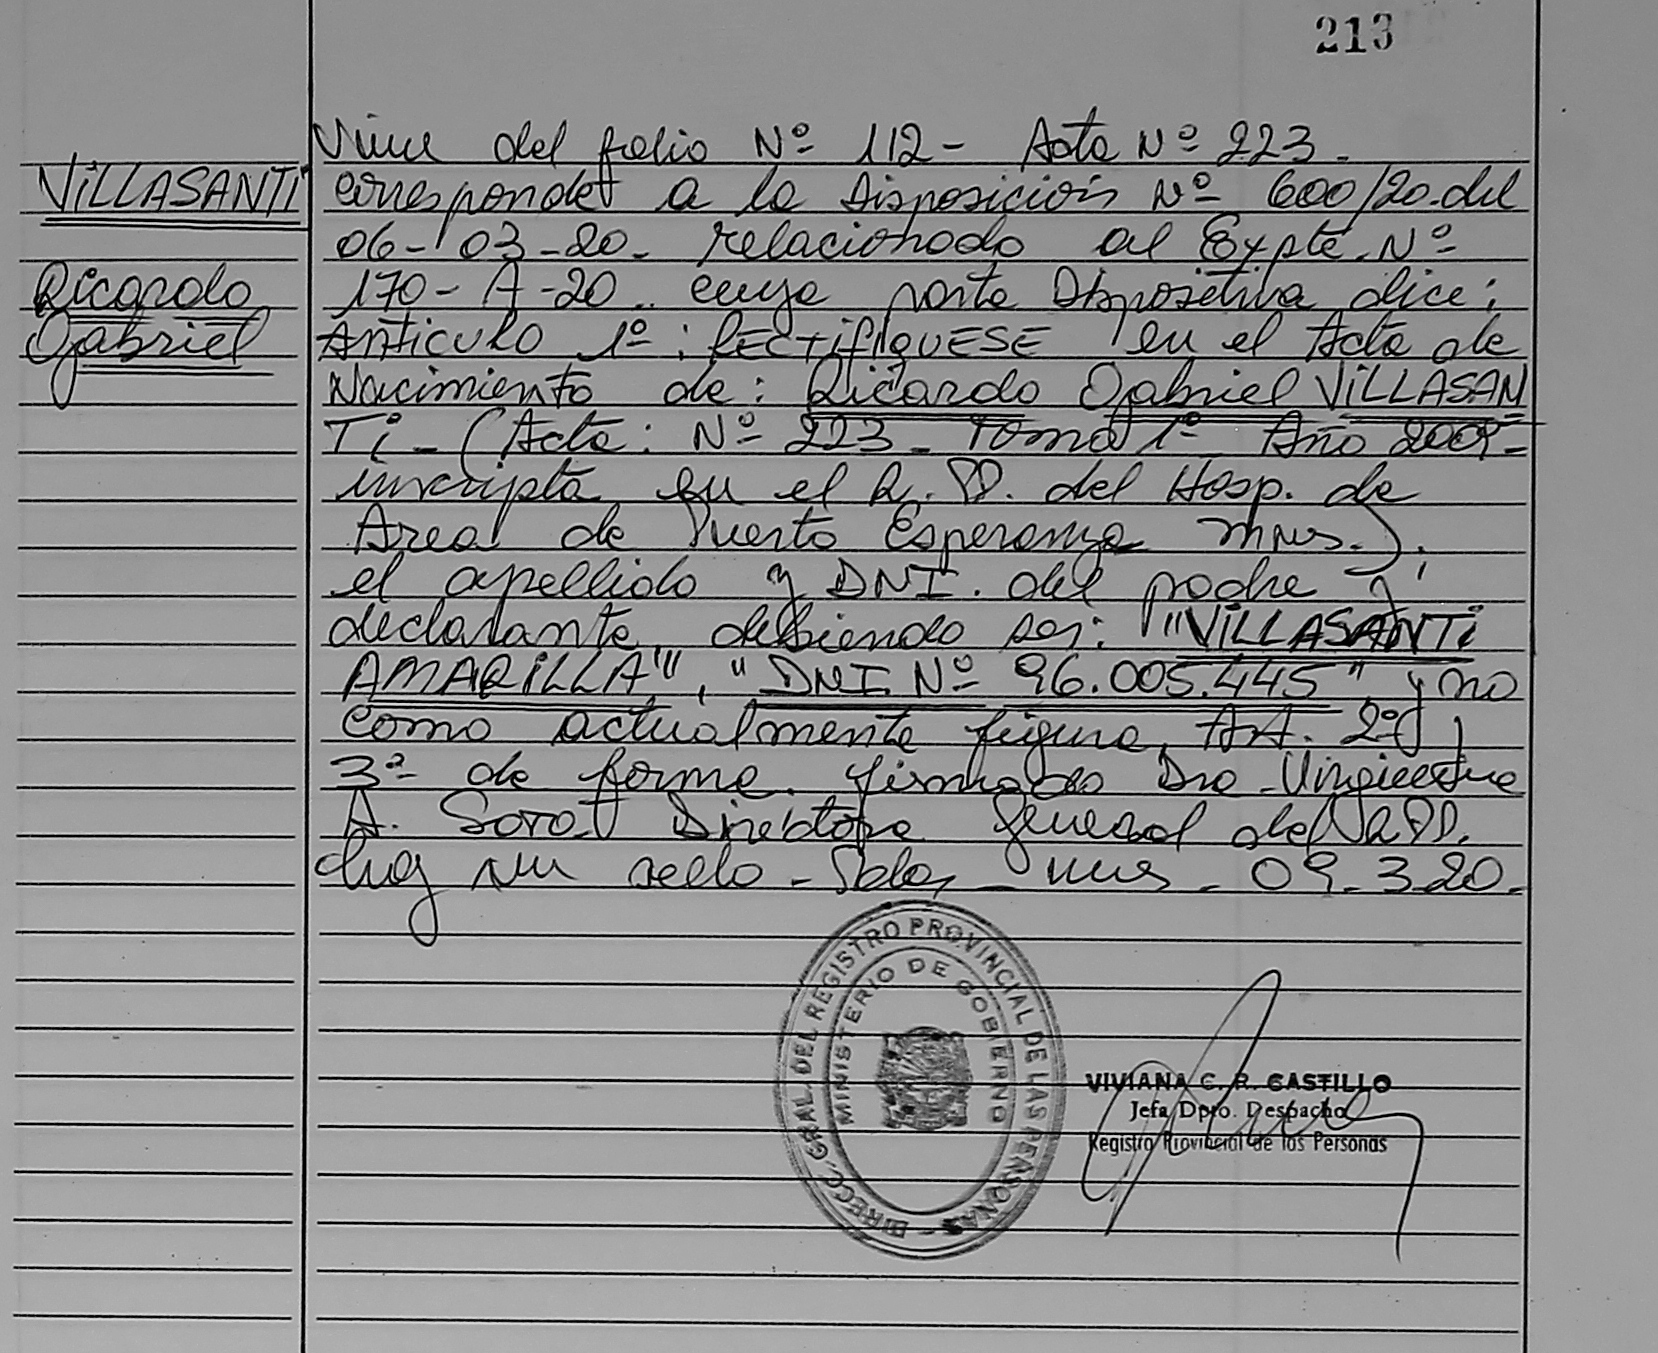 213
VILLASANTI
Ricardo
Gabriel
Viene del folio Nº 112- Acta Nº 223.
corresponde a la Disposición Nº 600/20. del
06-03-20. relacionado al Expte. Nº
170-A-20. cuya parte Dispositiva dice:
Artículo 1º: RECTIFIQUESE en el Acta de
Nacimiento de: Ricardo Gabriel VILLASAN
Ti- (Acta: Nº 223- Tomo 1º Año 2009-
inscripta en el R.PP. del Hosp. de
Area de Puerto Esperanza mnes.).
el apellido y DNI. del padre y
declarante, debiendo ser: "VILLASANTI
AMARILLA", "DNI. Nº 96.005.445" y no
como actualmente figura, Art. 2º y
3º de forma. firmado Dra.
A. Soto. Directora General del R.PP.
hay un sello - Pdas, - mnes - 09-3-20.
DIRECC. GRAL. DEL REGISTRO PROVINCIAL DE LAS PERSONAS
MINISTERIO DE GOBIERNO
VIVIANA C. R. CASTILLO
Jefa Dpto. Despacho
Registro Provincial de las Personas